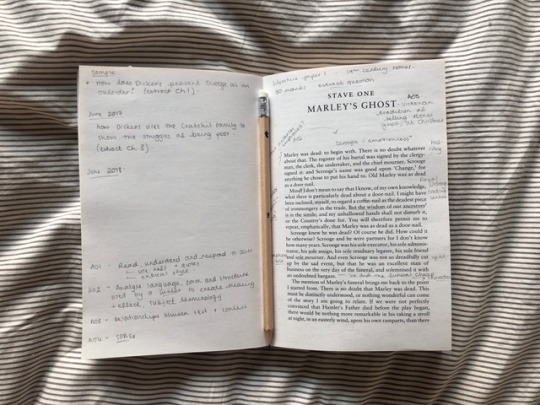 Sample
• How does Dickens present Scrooge as an
outsider? (Extract Ch1)
June 2017
How Dickens uses the Cratchit family to
show the struggles of being poor.
(Extract Ch 3)
June 2018
AO1 - Read, understand and respond to
AO2 - Analyse language, form and structure
used by a writer to create meanings
+ effect. Subject terminology
AO3 - Relationships between text + context
AO4 - SPAG
Literature paper 1 - 19th century novel.
30 marks extract question
STAVE ONE
MARLEY'S GHOST
AO3
Victorian
tradition of
telling ghost
at Christmas
Marley was dead: to begin with. There is no doubt whatever
about that. The register of his burial was signed by the clergy-
man, the clerk, the undertaker, and the chief mourner. Scrooge
signed it: and Scrooge's name was good upon 'Change, for
anything he chose to put his hand to. Old Marley was as dead
as a door-nail.
Mind! I don't mean to say that I know, of my own knowledge,
what there is particularly dead about a door-nail. I might have
been inclined, myself, to regard a coffin-nail as the deadest piece
of ironmongery in the trade. But the wisdom of our ancestors
is in the simile; and my unhallowed hands shall not disturb it,
or the Country's done for. You will therefore permit me to
repeat, emphatically, that Marley was as dead as a door-nail.
Scrooge knew he was dead? Of course he did. How could it
be otherwise? Scrooge and he were partners for I don't know
how many years. Scrooge was his sole executor, his sole adminis-
trator, his sole assign, his sole residuary legatee, his sole friend
and sole mourner. And even Scrooge was not so dreadfully cut
up by the sad event, but that he was an excellent man of
business on the very day of the funeral, and solemnised it with
an undoubted bargain.
The mention of Marley's funeral brings me back to the point
I started from. There is no doubt that Marley was dead. This
must be distinctly understood, or nothing wonderful can come
of the story I am going to relate. If we were not perfectly
convinced that Hamlet's Father died before the play began,
there would be nothing more remarkable in his taking a stroll
at night, in an easterly wind, upon his own ramparts, than there